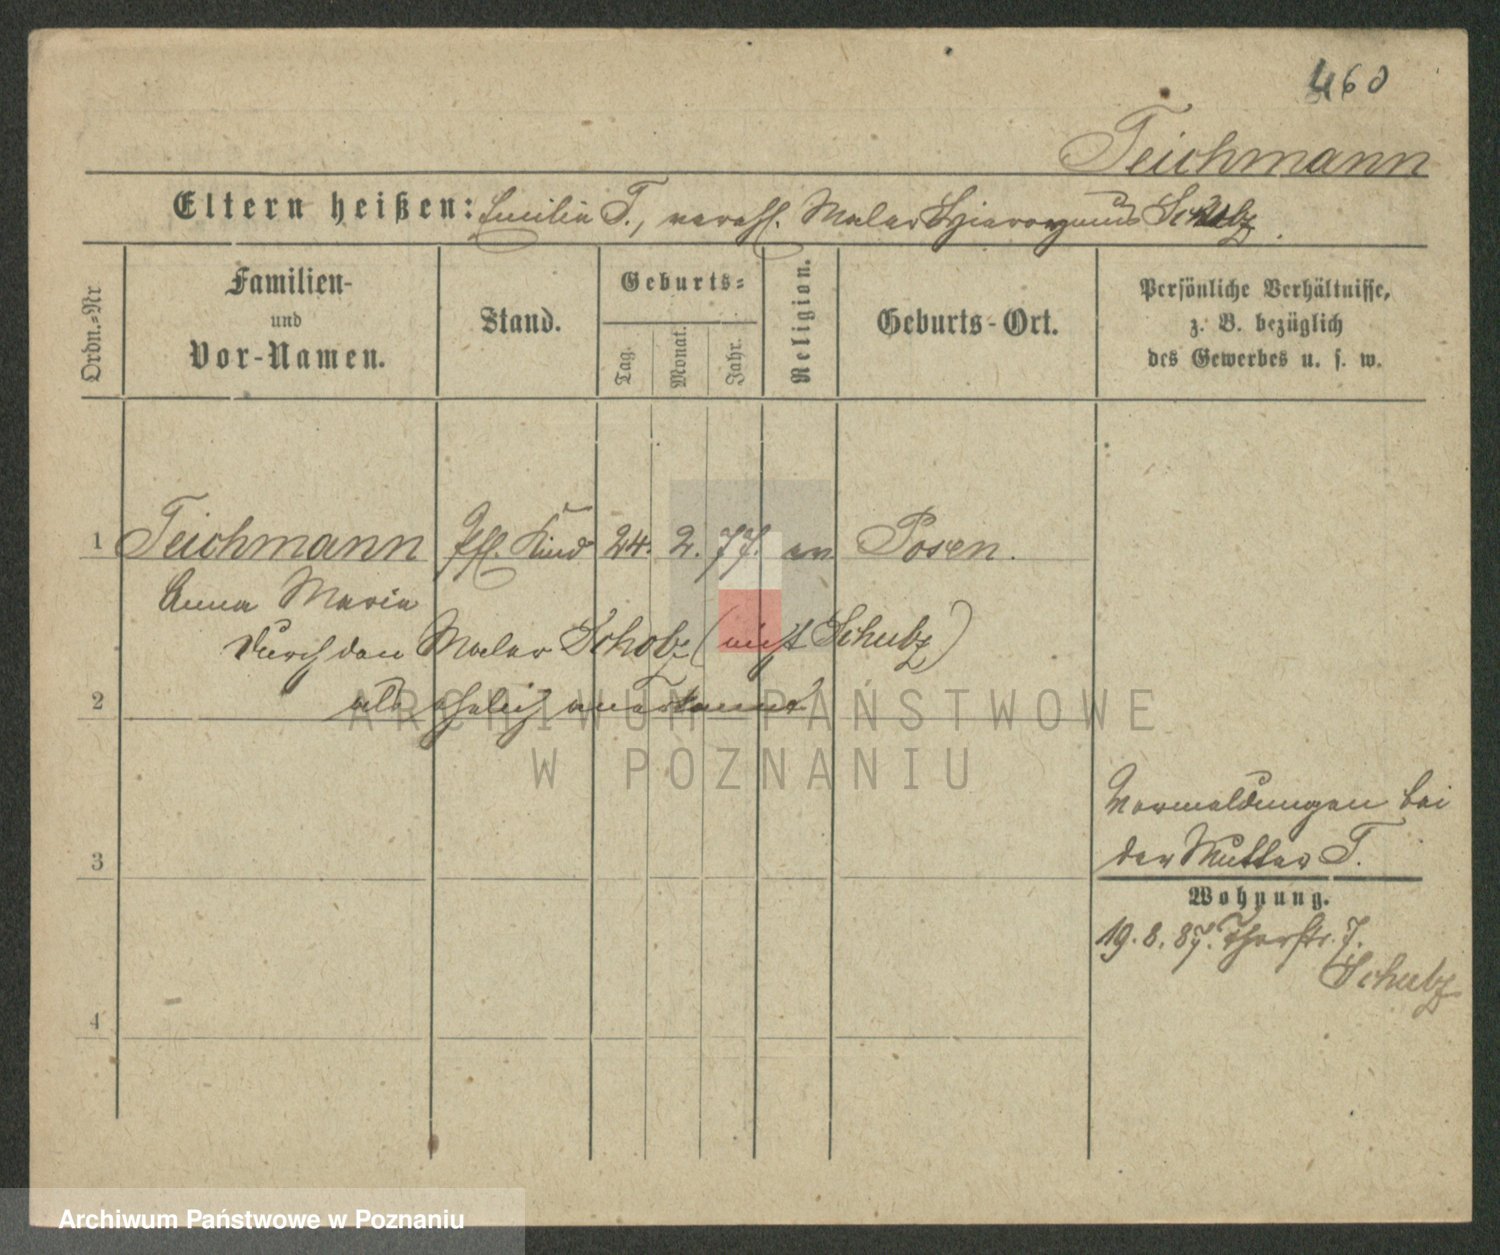 460
Teichmann
Eltern heißen: Emilie T., verehl. Maler Hieronymus Scholz.
Ordn.=Nr
Familien-
und
Vor-Namen.
Stand.
Geburts=
Tag.
Monat.
Jahr.
Religion.
Geburts-Ort.
Persönliche Verhältnisse,
z. B. bezüglich
des Gewerbes u. s. w.
1 Teichmann Pfl. Kind 24. 2. 77. ev. Posen.
Anna Maria
durch den Maler Scholz (nicht Schulz)
2 als ehelich anerkannt
ARCHIWUM PAŃSTWOWE
W POZNANIU
Vormeldungen bei
der Mutter T.
3
Wohnung.
19. 8. 87. Thorstr. 7.
Schulz
4
Archiwum Państwowe w Poznaniu